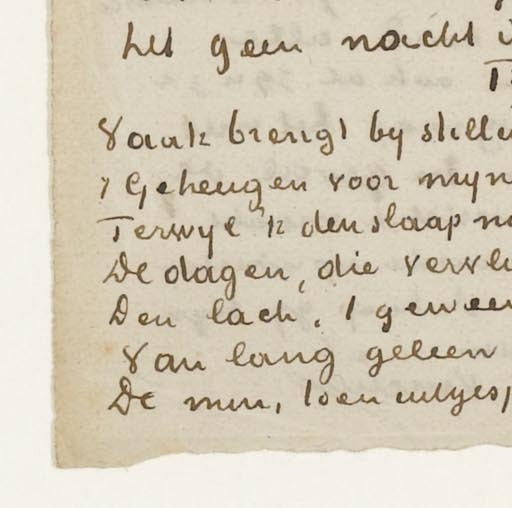 het geen nacht
Vaak brengt by stille
't Geheugen voor myn
Terwyl 'k den slaap
De dagen, die
Den lach, 't geween
Van lang geleen
De min, toen